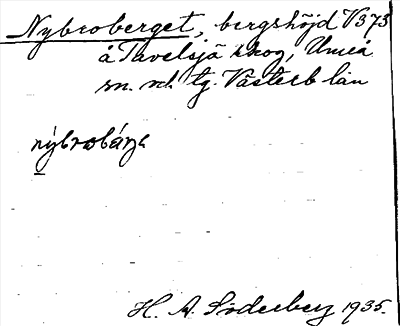 Nybroberget, bergshöjd V 373
å Tavelsjä skog, Umeå
sn. o. tg. Västerb län
nýbrobárze
H. A. Söderberg 1935.